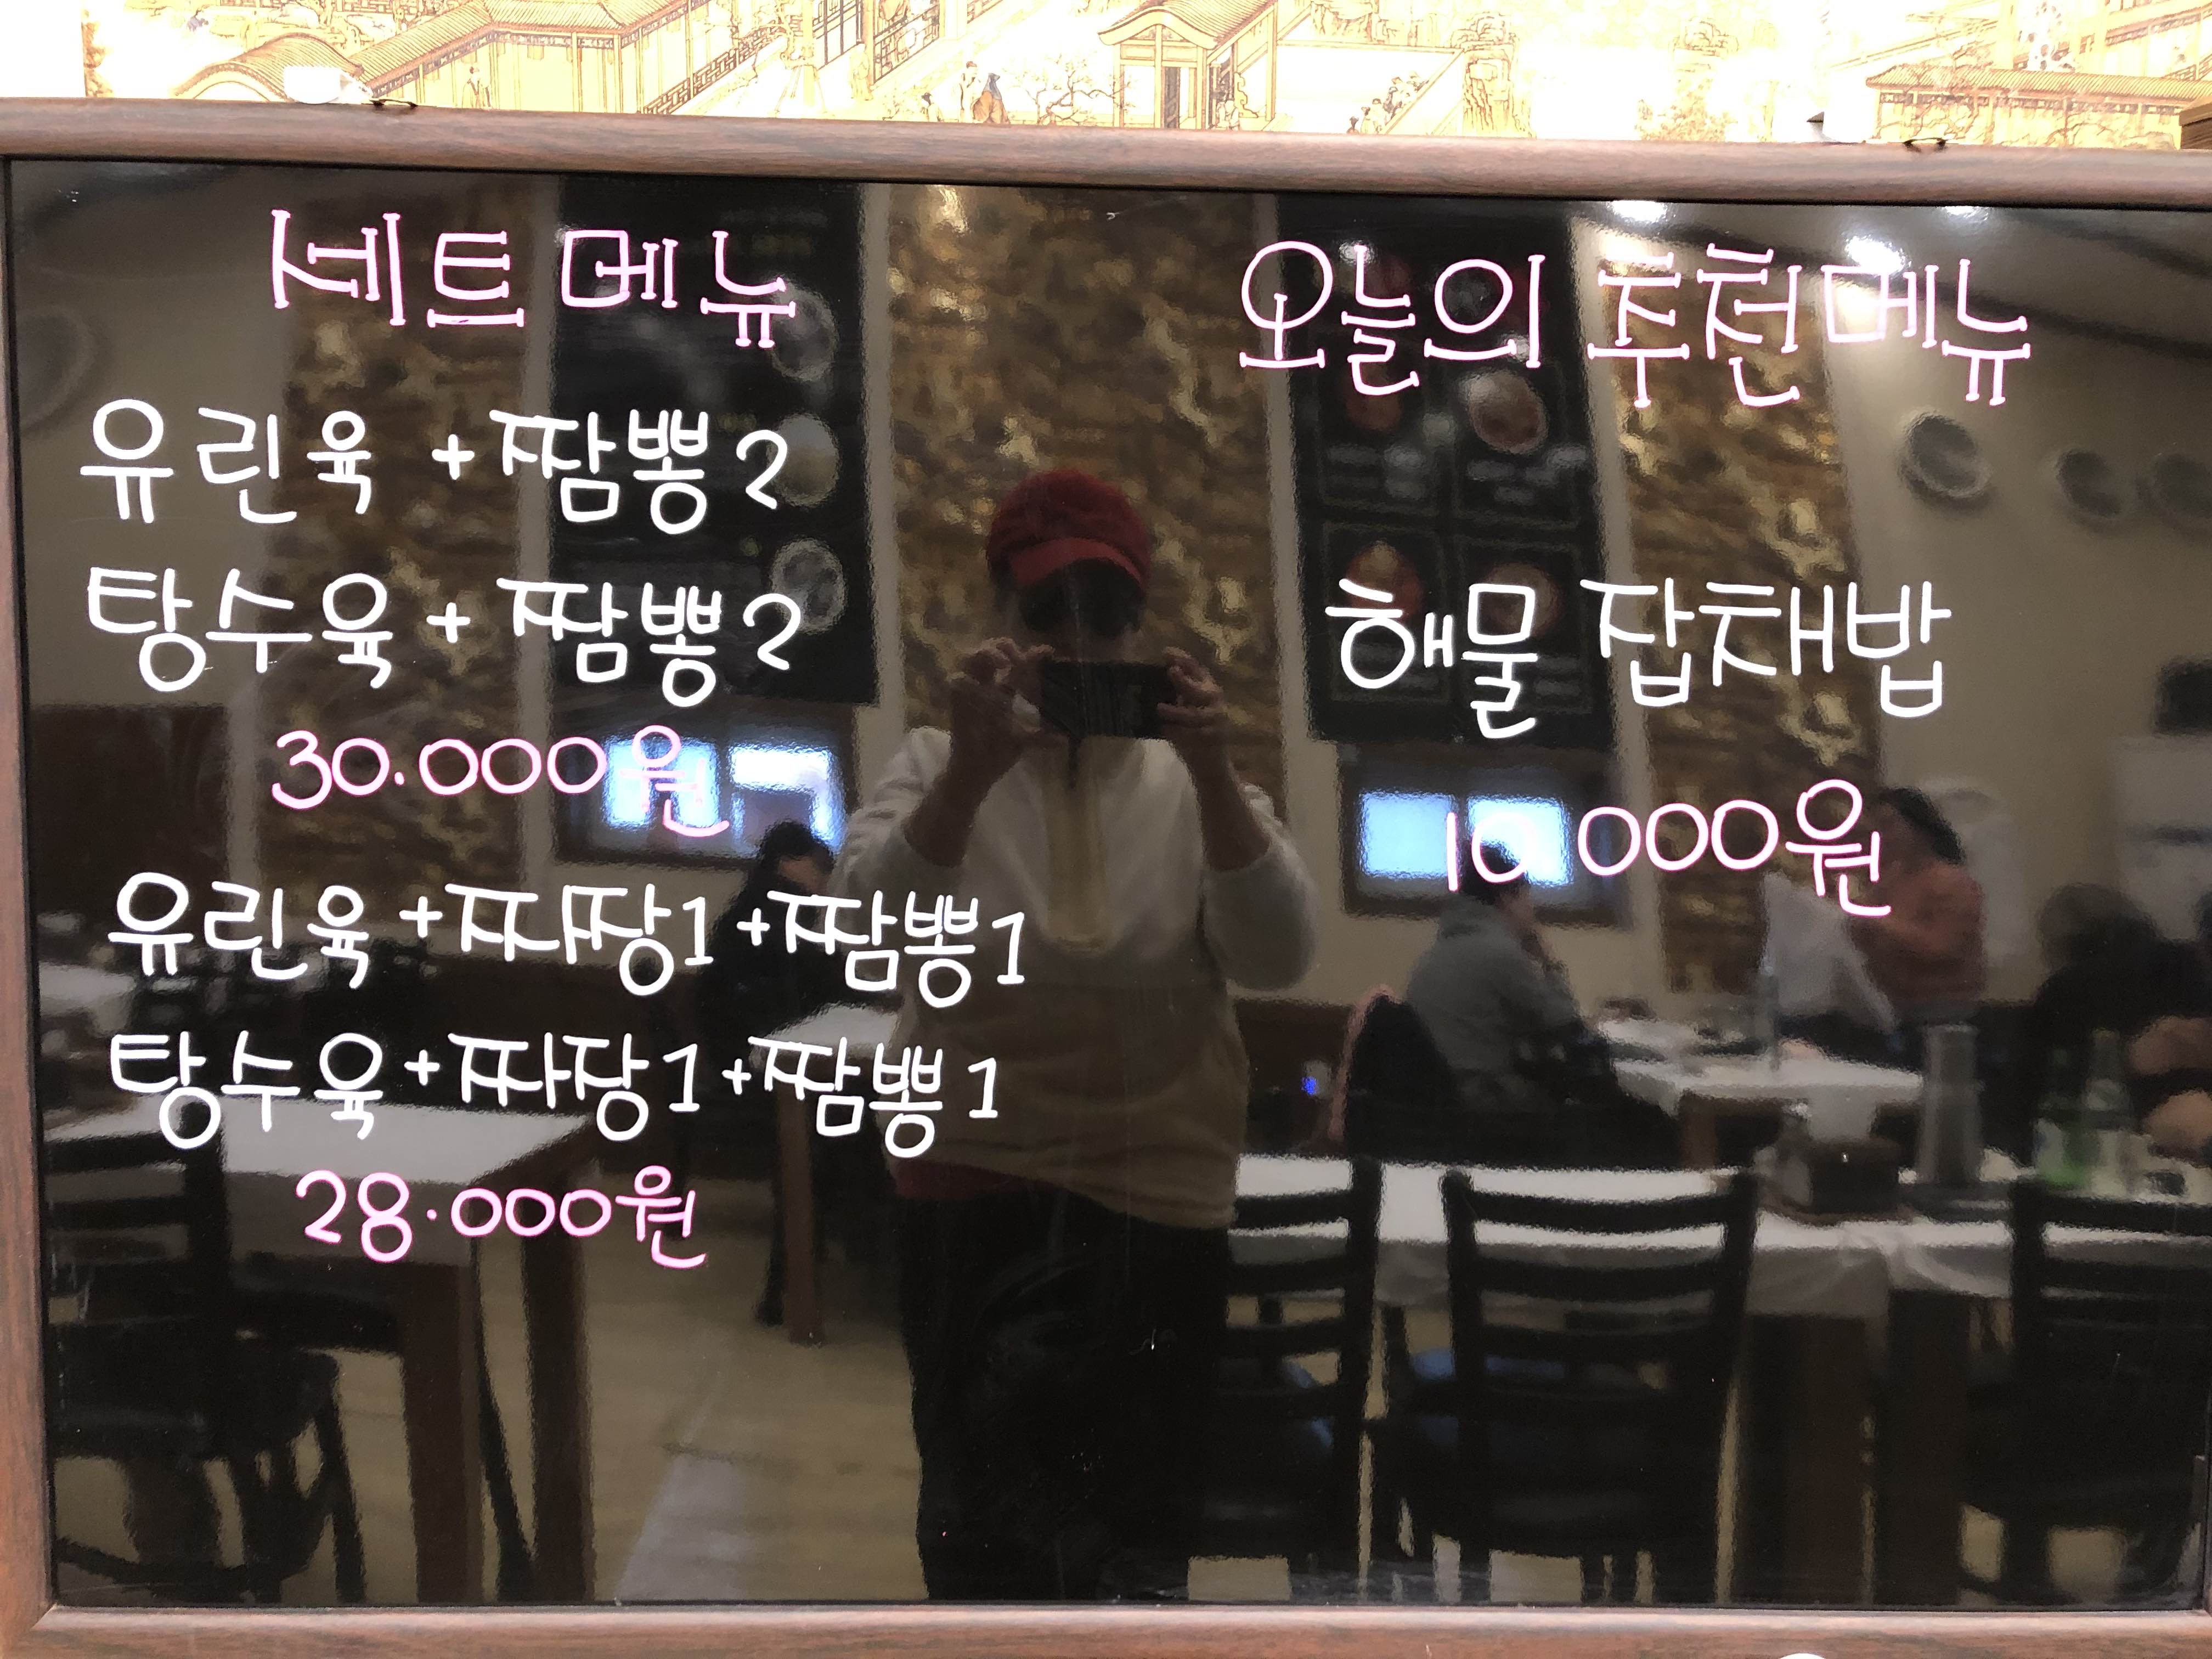 세트메뉴
유린육 + 짬뽕 2
탕수육 + 짬뽕 2
30.000원
유린육 + 짜짱1 + 짬뽕 1
탕수육 + 짜장 1 + 짬뽕 1
28.000원
오늘의 추천메뉴
해물 잡채밥
10 000원